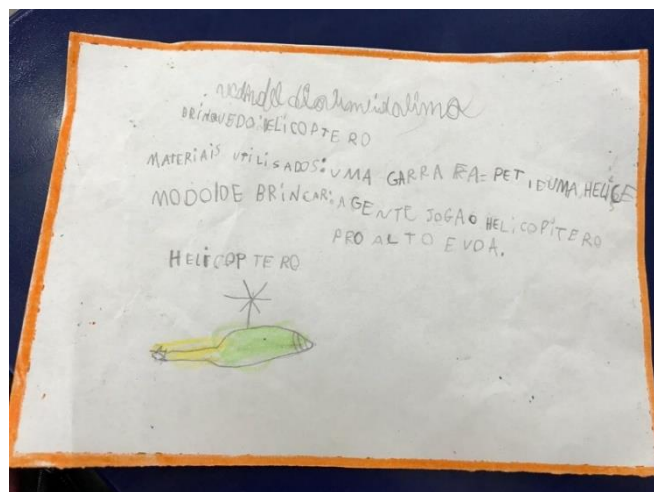 BRINQUEDO: HELICOPTERO
MATERIAIS UTILISADOS: UMA GARRAFA= PET, E UMA HELIÇE
MODO DE BRINCAR: A GENTE JOGA O HELICOPITERO
PRO ALTO E VOA.
HELICOPTERO